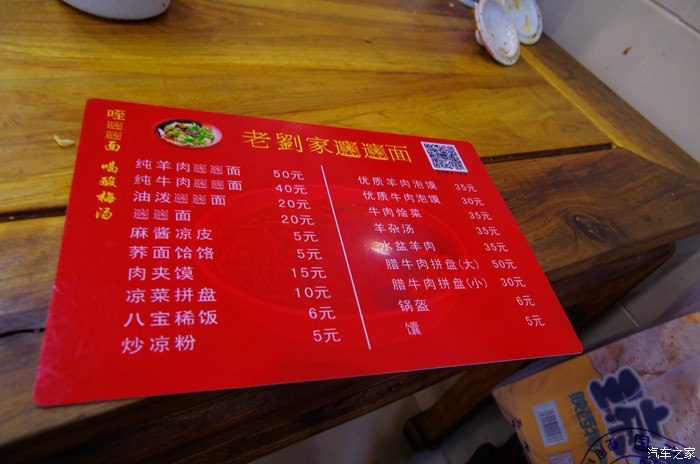 老劉家𰻞𰻞面
咥𰻞𰻞面 喝酸梅汤
纯羊肉𰻞𰻞面 50元
纯牛肉𰻞𰻞面 40元
油泼𰻞𰻞面 20元
𰻞𰻞面 20元
麻酱凉皮 5元
荞面饸饹 5元
肉夹馍 15元
凉菜拼盘 10元
八宝稀饭 6元
炒凉粉 5元
优质羊肉泡馍 35元
优质牛肉泡馍 30元
牛肉烩菜 35元
羊杂汤 35元
水盆羊肉 35元
腊牛肉拼盘(大) 50元
腊牛肉拼盘(小) 30元
锅盔 6元
馕 5元
汽车之家